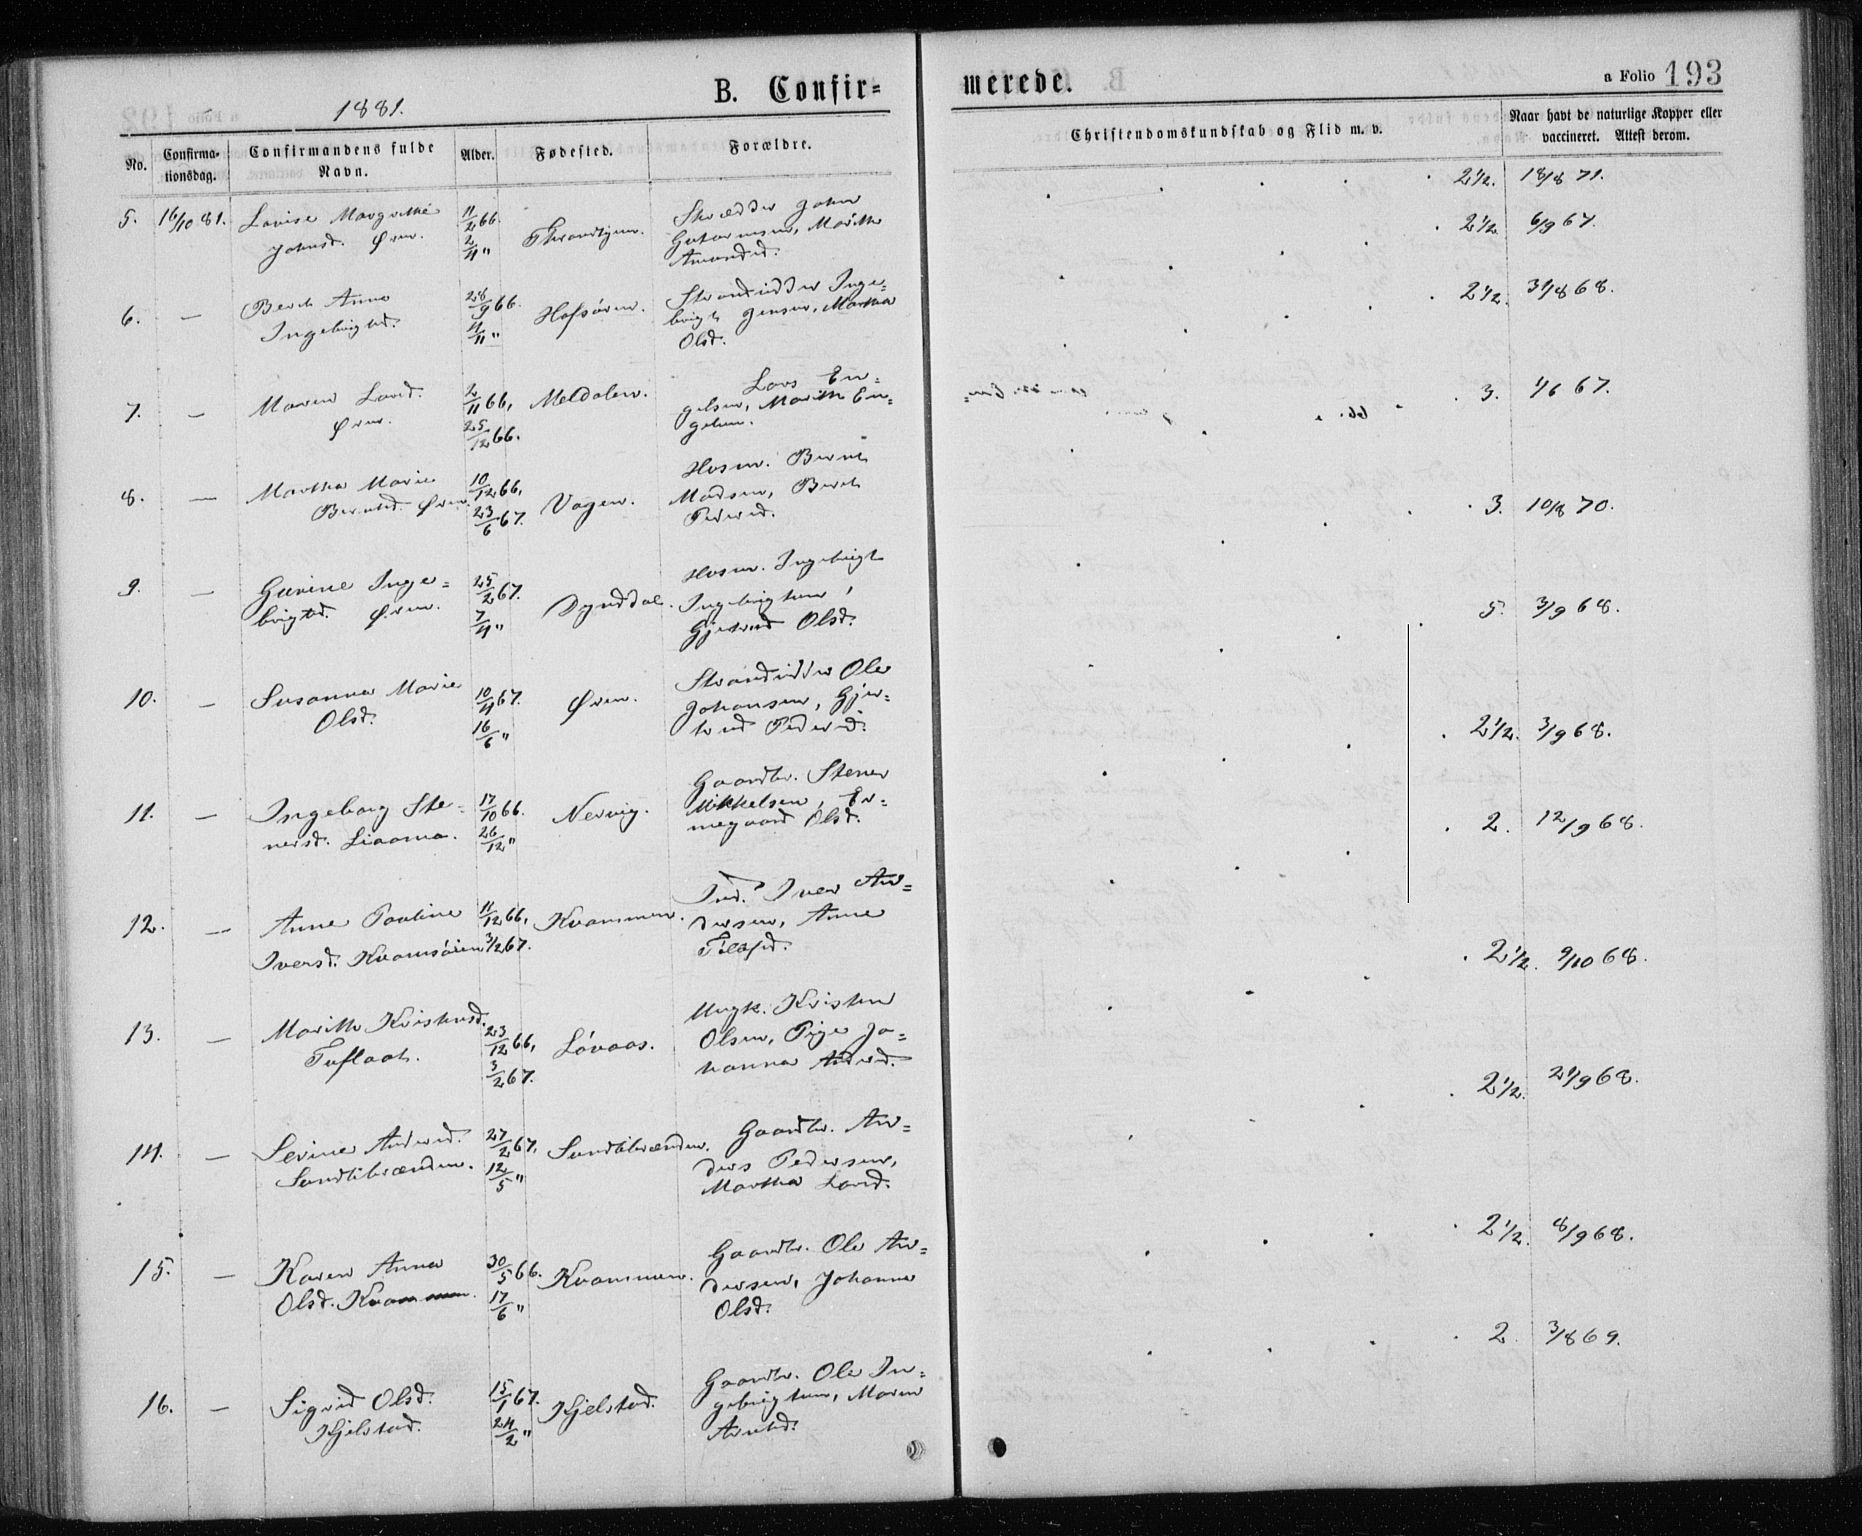 B. Confir=
merede.
a Folio 193
1881.
No.
Confirma-
tionsdag.
Confirmandens fulde
Navn.
Alder.
Fødested.
Forældre.
Christendomskundskab og Flid m. v.
Naar havt de naturlige Kopper eller
vaccineret. Attest derom.
2½. 18/8 71.
5. 16/10 81. Lovise Margrethe 11/2 66. Skrædder John
Johnsd. Øren. 2/4 " Marith
2½ 6/9 67.
6. — Berit Anna 28/9 66. Hofsøren. Strandsidder Inge=
Ingebrigtsd. 4/11 " brigt Jensen, Martha
Olsd.
2½. 31/8 68.
7. — Maren Larsd. 2/11 66, Meldalen. Lars En=
Øren. 25/12 66. gelsen, Marith En=
3. 1/6 67.
8. — Martha Marie 10/12 66, Vagen. Husm. Bernt
Berntsd. Øren. 23/6 67. Madsen, Berit
Pedersd.
3. 10/8 70.
9. — Gurine Inge= 25/2 67. Dynddal. Husm. Ingebrigt
brigtsd. Øren. 7/4 " Ingebrigtsen,
Gjertrud Olsd.
5. 3/9 68.
10. — Susanna Marie 10/4 67. Øren. Strandsidder Ole
Olsd. 16/6 " Johansen, Gjer=
trud Pedersd.
2½. 3/9 68.
11. — Ingeborg Ste= 17/10 66. Nervig. Gaardbr. Stener
nersd. Liaamo. 26/12 " Mikkelsen, Er=
megaard Olsd.
2. 12/9 68.
12. — Anne Pauline 11/12 66, Kvammen. Ind. Iver An=
Iversd. Kvamsøien 3/2 67. dersen, Anne
2½. 9/10 68.
13. — Marith Kristensd. 23/12 66, Løvaas. Ungk. Kristen
Tuflaat. 3/2 67. Olsen, Pige Jo=
hanna Andersd.
2½. 21/9 68.
14. — Serine Andersd. 27/2 67, Sandtibrænden. Gaardbr. An=
Sandtibrænden. 12/5 " ders Pedersen,
Martha Larsd.
2½. 8/9 68.
15. — Karen Anna 30/5 66. Kvammen. Gaardbr. Ole An=
Olsd. Kvammen. 17/6 " dersen, Johanna
Olsd.
2. 3/8 69.
16. — Sigrid Olsd. 15/1 67. Kjelstad. Gaardbr. Ole In=
Kjelstad. 24/2 " gebrigtsen, Maren
Arntsd.